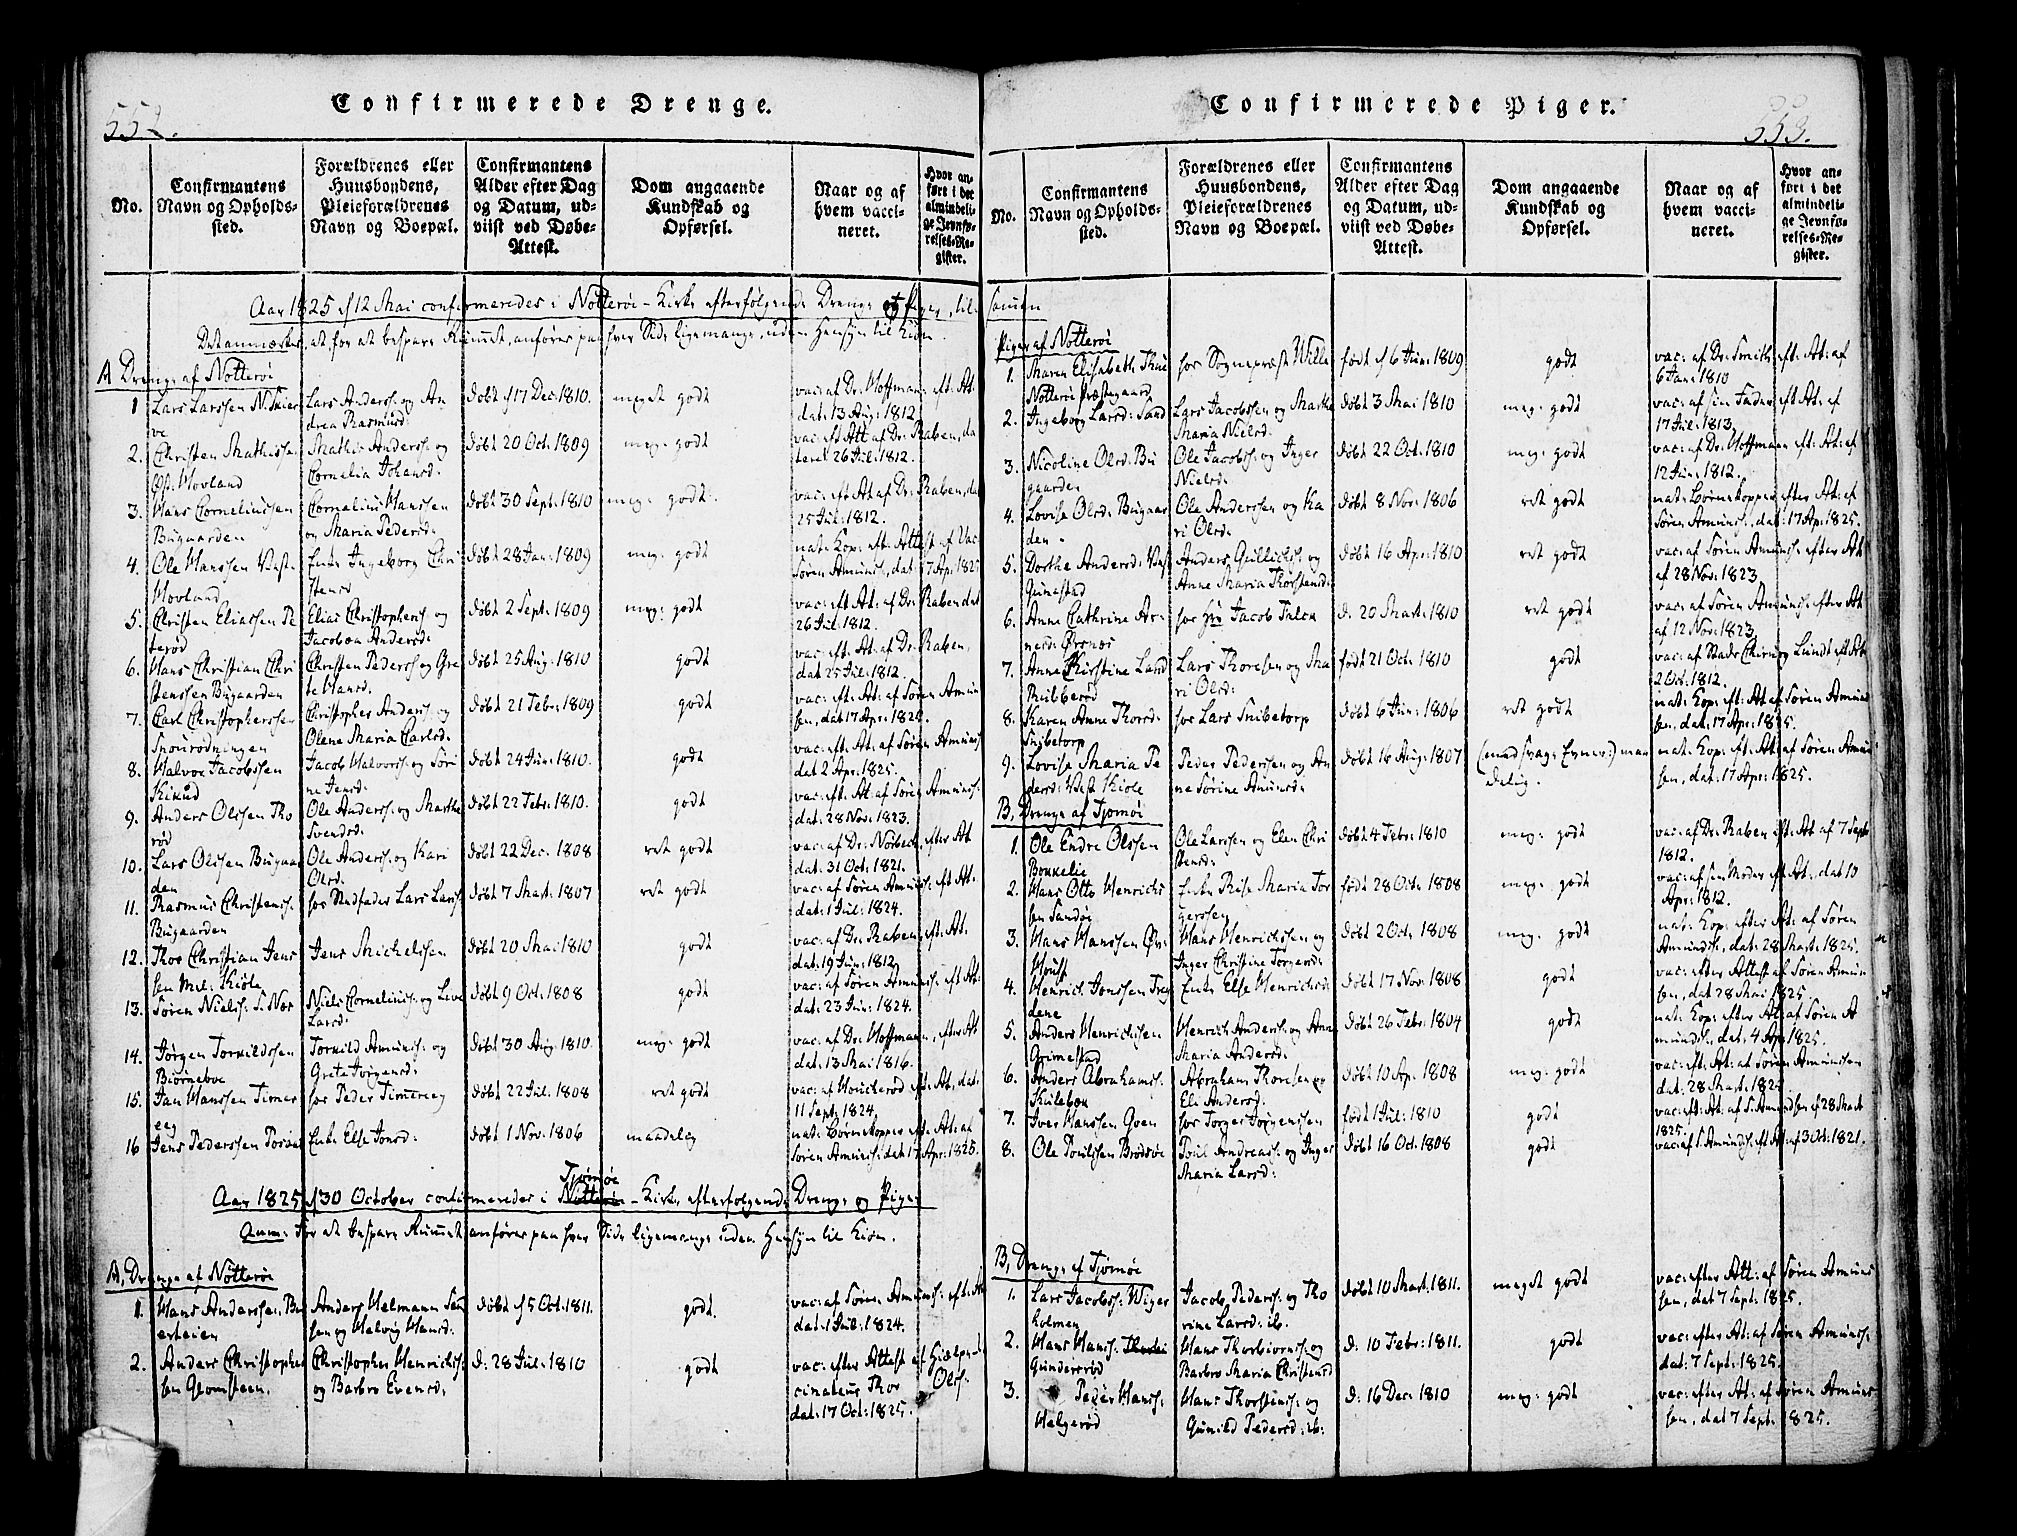 552.
Confirmerede Drenge.
No.
Confirmantens Navn og Opholdssted.
Forældrenes eller Huusbondens, Pleieforældrenes Navn og Boepæl.
Confirmantens Alder efter Dag og Datum, udviist ved Døbe-Attest.
Dom angaaende Kundskab og Opførsel.
Naar og af hvem vaccineret.
Hvor anført i det almindelige Jevnførelses-Register.
Aar 1825 d 12 Mai confirmeredes i Nøtterøi-Kirke efterfølgende Drenge og Piger, til-
Det anmærkes, at for at bespare Rummet, anføres paa hver Side ligemange, uden Hensyn til Kiøn.
A Drenge af Nøtterøi
1 Lars Larssen N: Skier
ve
Lars Anderss: og An
drea Rasmusd:
døbt d 17 Dec: 1810.
meget godt
vac: af Dr: Hoffmann eft: At:
dat: 13 Aug: 1812.
2. Christen Mathisse-
Øst: Hovland
Mathis Anderss: og
Cornelia Johansd:
døbt 20 Oct: 1809
meg: godt
vac: eft: Att: af Dr: Raben, da
teret 26 Jul: 1812.
3. Hans Corneliussen
Bugaarden
Cornelius Hanssen
og Maria Pedersd:
døbt 30 Sept: 1810
meg: godt.
vac: eft: At: af Dr: Raben, da
25 Jul: 1812.
4. Ole Hanssen Vest-
Hovland
Enke Ingeborg Chri
stensd:
døbt 28 Jan: 1809
meg: godt
nat: Kop: eft: Attest af Vac
Søren Amunds:, dat: 17 Ap: 1825
5. Christen Eliassen Te
terød
Elias Christophers: og
Jacobea Andersd:
døbt 2 Sept: 1809
meg: godt
vac: eft: At: af Dr: Raben dat
26 Jul: 1812.
6. Hans Christian Chri
stenssen Bugaarden
Christen Pederss: og Gre
te Hansd:
døbt 25 Aug: 1810
godt
vac: eft: At: af Dr: Raben,
dat 25 Jul: 1812.
7. Carl Christopherssen
Christopher Anders: og
Olene Maria Carlsd:
døbt 21 Febr: 1809
godt
vac: eft: At: af Søren Amun
sen, dat 17 Apr: 1825.
8. Halvor Jacobssen
Kikud
Jacob Halvorss: og Søri
ne Jensd:
døbt 24 Jun: 1810.
godt
vac: eft: At: af Søren Amunds:
dat 2 Apr: 1825.
9. Anders Olssen Tho
rød
Ole Anderss: og Marthe
Svendsd:
døbt 22 Febr: 1810.
godt
vac: eft: At: af Søren Amunds:
dat: 28 Nov: 1823.
10. Lars Olssen Bugaar
den
Ole Anderss: og Kari
Olsd:
døbt 22 Dec: 1808
ret godt
vac: af Dr: Norbech, efter At
dat: 31 Oct: 1821.
11. Rasmus Christens:
Bugaarden
for Stedfader Lars Larss:
døbt 7 Mart: 1807
ret godt
vac: af Søren Amunds: eft: At:
dat: 1 Jul: 1824.
12. Thor Christian Jens
sen Mel: Kiøle
Jens Michelssen
døbt 20 Mai 1810
godt
vac: af Dr: Raben, eft: At:
dat: 19 Jun: 1812.
13. Søren Niels:
Niels Cornelius: og Live
Larsd:
døbt 9 Oct: 1808
godt
vac: af Søren Amunds: eft At:
dat: 23 Jun: 1824.
14. Jørgen Torkildssen
Biørneboe
Torkild Amunds: og
Grete Jørgensd:
døbt 30 Aug: 1810.
meg: godt
vac: af Dr: Hoffmann, efter At
dat: 13 Mai 1816.
15. Jan Hanssen Timer
eeg
for Peder Timereeg
døbt 22 Jul: 1808
ret godt
11 Sept: 1824.
16 Jens Pederssen
Enke Else Jonsd:
døbt 1 Nov: 1806
maadelig
nat: Børnekopper eft: At: af
Søren Amunds: dat 17 Apr: 1825.
Aar 1825 d 30 October confirmeredes i Tjømøe Nøtterøi-Kirke efterfølgende Drenge og Piger
Anm: For at bespare Rummet anføres paa hver Side ligemange uden Hensyn til Kiøn.
A, Drenge af Nøtterøi
1. Hans Anderssen
Anders Helmann
sen og Helvig Hansd:
døbt d 5 Oct: 1811.
godt.
vac: af Søren Amunds: eft: At
dat: 1 Jul: 1824.
2. Anders Christopher
sen Glomsteen.
Christopher Henrichss:
og Barbro Evensd:
d: 28 Jul: 1810
godt
vac: efter Attest af Hielpevac
cinateur Thor Olss:
dat: 17 Oct: 1825.
Confirmerede Piger.
553.
No.
Confirmantens Navn og Opholdssted.
Forældrenes eller Huusbondens, Pleieforældrenes Navn og Boepæl.
Confirmantens Alder efter Dag og Datum, udviist ved Døbe-Attest.
Dom angaaende Kundskab og Opførsel.
Naar og af hvem vaccineret.
Hvor anført i det almindelige Jevnførelses-Register.
sammen
Piger af Nøtterøi
1. Maren Elisabeth
Nøtterøi Præstegaard
for Sognepræst Wille
født d 6 Jun: 1809
godt
vac: af Dr: Smith eft: At: af
6 Jan: 1810
2. Ingeborg Larsd: Sand
Lars Jacobssen og Marthe
Maria Nielsd:
døbt 3 Mai 1810
meg: godt
vac: af sin Fader eft: At: af
17 Jul: 1813.
3. Nicoline Olsd: Bu
gaarde-
Ole Jacobss: og Inger
Nielsd:
døbt 22 Oct: 1810
meg: godt
vac: af Dr: Hoffmann eft: At: af
12 Jun: 1812.
4. Lovise Olsd: Bugaar
den -
Ole Anderssen og Ka
ri Olsd:
døbt 8 Nov: 1806
ret godt
nat: Børnekopper efter At: af
Søren Amunds:, dat: 17 Ap: 1825.
5. Dorthe Andersd: Vest
Anders Gullichs: og
Anne Maria Thorstensd:
døbt 16 Apr: 1810
ret godt
vac: af Søren Amunds: efter At
af 28 Nov: 1823.
6. Anne Cathrine Ar-
nes: Ørsnæs
for Hr: Jacob Falck
d: 20 Mart: 1810
ret godt
vac: af Søren Amunds: efter At
af 12 Nov: 1823.
7. Anne Kirstine Larsd
Lars Thoresen og Ma
ri Olsd:
født 21 Oct: 1810
godt
vac: af Stads Chirurg Lundt eft At
2 Oct: 1812.
8. Karen Anne Thorsd:
Snibetorp
for Lars Snibetorp
døbt 6 Jun: 1806
ret godt
nat: Kop: eft: At: af Søren Amund
sen, dat: 17 Apr: 1825.
9. Lovise Maria Pe
dersd: Vest Kiøle
Peder Pederssen og An
ne Sørine Amundsd:
døbt 16 Aug: 1807
(med svage Evner) maa
delig.
nat: Kop: eft: At: af Søren Amund
sen, dat: 17 Apr: 1825.
B, Drenge af Tjømøi
1. Ole Endre Olssen
Bonkelie
Ole Larssen og Elen Chri
stensd:
døbt 4 Febr: 1810
meg: godt
vac: af Dr: Raben eft: At af 7 Sept
1812.
2. Hans Otto Henrichs
sen Sandøe
Enke Rise Maria Tor
gerssen
født 28 Oct: 1808
meg: godt
vac: af sin Moder eft At: dat 10
Apr: 1812.
3. Hans Hanssen
Hans Henrichssen og
Inger Christine Torgersd:
døbt 2 Oct: 1808
meg: godt
nat: Kop: efter At: af Søren
Amunds:, dat: 28 Mart: 1825.
4. Henrich Jonssen
Enke Else Henrichsd:
døbt 17 Nov: 1808
godt
vac: efter Attest af Søren Amun
sen, dat 28 Mai 1825.
5. Anders Henrichssen
Grimestad
Henrich Anderss: og Anne
Maria Andersd:
døbt 26 Febr: 1804
godt
nat: Kop: efter At: af Søren A
munds:, dat: 4 Apr: 1825.
6. Anders Abrahams:
Skilebou
Abraham Thoresen og
Eli Andersd:
døbt 10 Ap: 1808
meg: godt
vac: eft: At: af Søren Amundsen
dat: 28 Mart: 1825.
7. Iver Hanssen Gven
for Torger Jørgenssen
født 1 Jul: 1810
godt
vac: eft: At: af S: Amundsen af 28 Mart
1825.
8. Ole Poulssen Brødsøe
Poul Andreass: og Inger
Maria Larsd:
døbt 16 Oct: 1808
godt
vac: af S: Amunds: eft At: af 3 Oct: 1821.
B, Drenge af Tjømøi
1. Lars Jacobss:
holmen
Jacob Pederss: og Tho
rine Larsd: ib.
døbt 10 Mart: 1811.
meget godt
vac: efter Att: af Søren Amund
sen, dat 7 Sept: 1825.
2. Hans Hans:
Gundersrød
Hans Thorbiørns: og
Barbro Maria Christensd
d: 10 Febr: 1811.
godt
vac: efter At: af Søren Amunds:
dat: 7 Sept: 1825.
3. Peder Hans:
Helgerød
Hans Thorstens: og
Gunild Pedersd: ib:
d: 16 Dec: 1810
meg: godt
vac: efter At: af Søren Amund
sen, dat 7 Sept: 1825.